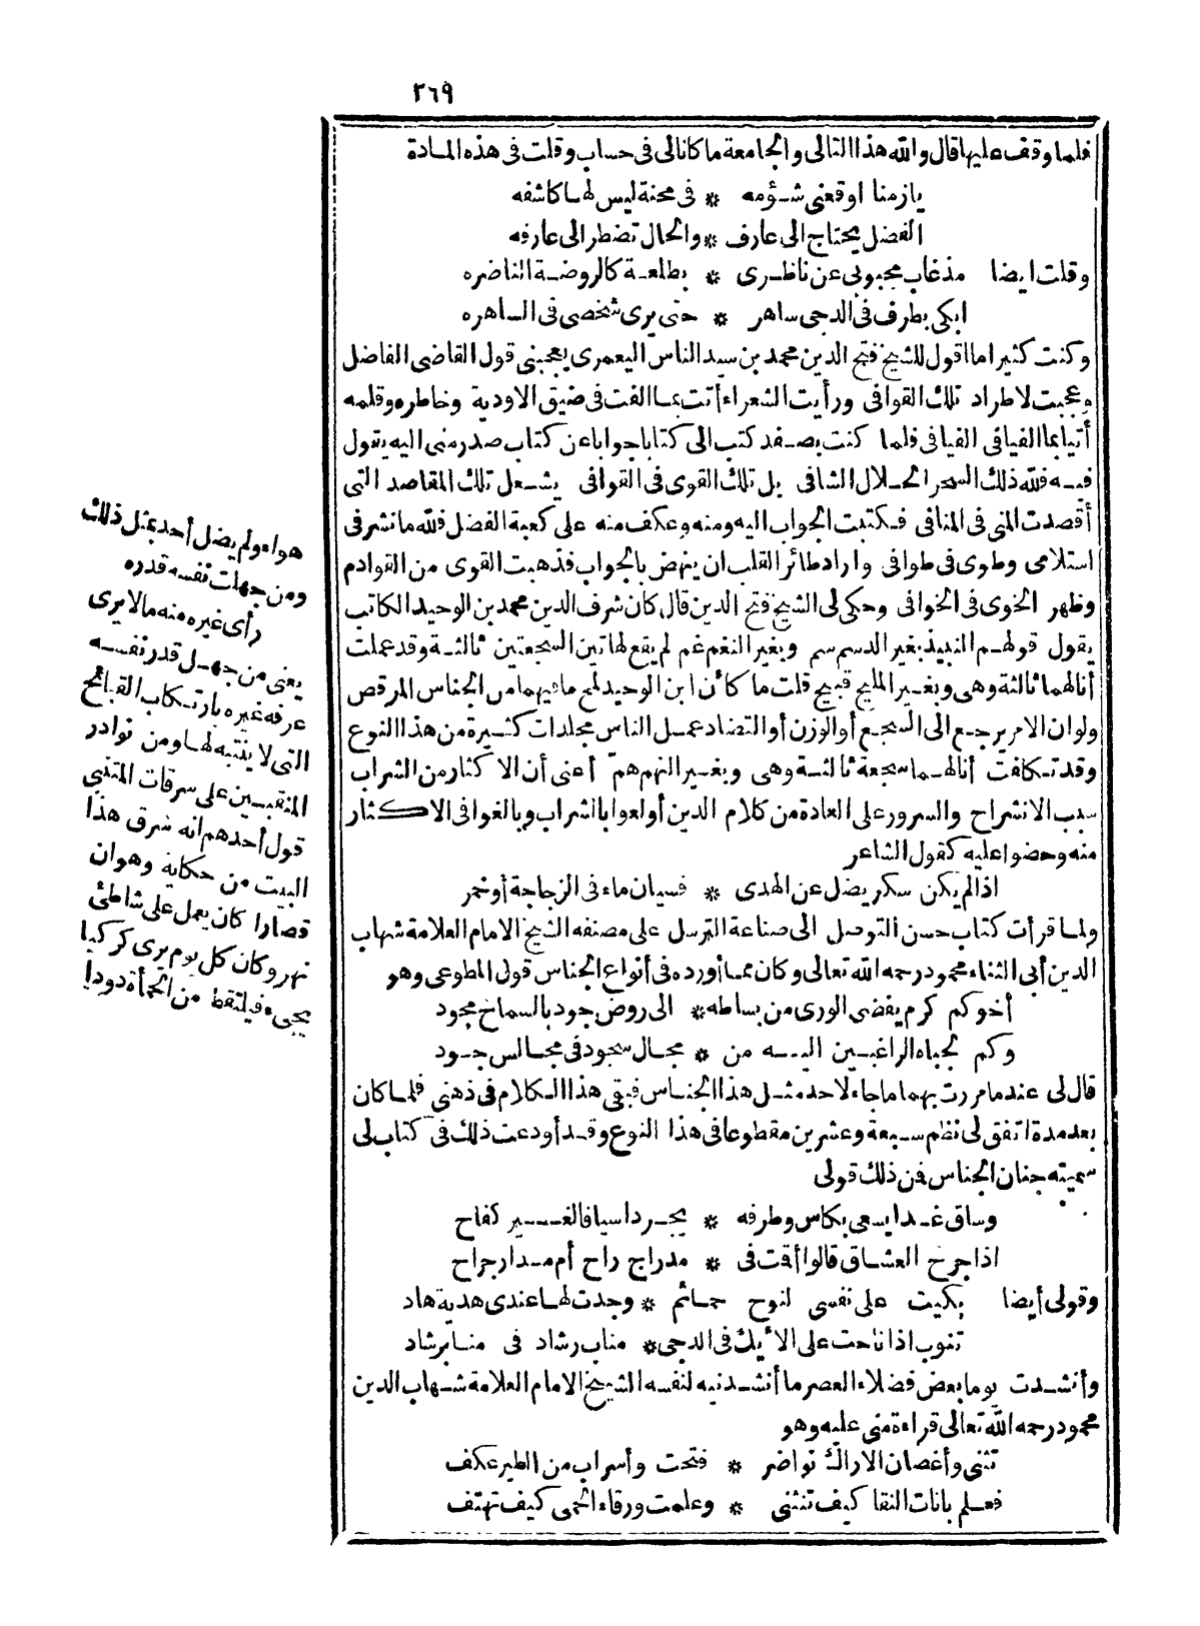 ٢٦٩
فلما وقف عليها قال والله هذا التالى والجامعة ما كانا لى فى حساب وقلت فى هذه المادة
يا زمنا اوقعنى شؤمه * فى محنة ليس لها كاشفه
الفضل يحتاج الى عارف * والحال تضطر الى عارفه
وقلت ايضا مذغاب محبوبى عن ناظرى * بطلعة كالروضة الناضره
ابكى بطرف فى الدجى ساهر * حتى يرى شخصى فى الساهره
وكنت كثيرا ما اقول للشيخ فتح الدين محمد بن سيد الناس اليعمرى يعجبنى قول القاضى الفاضل
وعجبت لاطراد تلك القوافى ورأيت الشعراء أتت بما الفت فى ضيق الاودية وخاطره وقلمه
أتيا بما الفيا فى الفيافى فلما كنت بصفد كتب الى كتابا جوابا عن كتاب صدر منى اليه يقول
فيه فلله ذلك السحر الحلال الشافى بل تلك القوى فى القوافى يشعل تلك المقاصد التى
أقصدت المنى فى المنافى فكتبت الجواب اليه ومنه وعكف منه على كعبة الفضل فلله ما نشر فى
استلامى وطوى فى طوافى واراد طائر القلب ان ينهض بالجواب فذهبت القوى من القوادم
وظهر الخوى فى الخوافى وحكى لى الشيخ فتح الدين قال كان شرف الدين محمد بن الوحيد الكاتب
يقول قولهم النبيذ بغير الدسم سم وبغير النغم غم لم يقع لهاتين السجعتين ثالثة وقد عملت
أنا لهما ثالثة وهى وبغير المليح قبيح قلت ما كأن ابن الوحيد لمح ما فيهما من الجناس المرقص
ولو ان الامر يرجع الى السجع أو الوزن أو التضاد عمل الناس مجلدات كثيرة من هذا النوع
وقد تكافت أنا لهما سجعة ثالثة وهى وبغير النهم هم أعنى أن الاكثار من الشراب
سبب الانشراح والسرور على العادة من كلام الدين أولعوا بالشراب وبالغوا فى الاكثار
منه وحضوا عليه كقول الشاعر
اذا لم يكن سكر يضل عن الهدى * فسيان ماء فى الزجاجة أو خمر
ولما قرأت كتاب حسن التوصل الى صناعة الترسل على مصنفه الشيخ الامام العلامة شهاب
الدين أبى الثناء محمود رحمه الله تعالى وكان مما أورده فى أنواع الجناس قول المطوعى وهو
أخو كم كرم يفضى الورى من بساطه * الى روض جود بالسماح مجود
وكم لجباه الراغبين اليه من * مجال سجود فى مجالس جود
قال لى عند ما مررت بهما ما جاء لاحد مثل هذا الجناس فبقى هذا الكلام فى ذهنى فلما كان
بعد مدة اتفق لى نظم سبعة وعشرين مقطوعا فى هذا النوع وقد أودعت ذلك فى كتاب لى
سميته جنان الجناس فن ذلك قولى
وساق غدا يسعى بكاس وطرفه * يجرد اسيافا لغير كفاح
اذا جرح العشاق قالوا أقت فى * مدراج راح أم مدار جراح
وقولى أيضا بكيت على نفسى لنوح حمائم * وجدت لها عندى هدية هاد
تنوب اذا ناحت على الأيك فى الدجى * مناب رشاد فى منابر شاد
وأنشدت يوما بعض فضلاء العصر ما أنشدنيه لنفسه الشيخ الامام العلامة شهاب الدين
محمود رحمه الله تعالى قراءة منى عليه وهو
تثنى وأغصان الاراك نواضر * فتحت وأسراب من الطير عكف
فعلم بانات النقا كيف تنثنى * وعلمت ورقاء الحمى كيف تهتف
هواء ولم يضل أحد بمثل ذلك
ومن جهلت نفسه قدره
رأى غيره منه مالا يرى
يعنى من جهل قدر نفسه
عرفه غيره بارتكاب القبائح
التى لا ينتبه لها ومن نوادر
المنقبين على سرقات المتنبى
قول أحدهم انه سرق هذا
البيت من حكاية وهو ان
قصارا كان يعمل على شاطئ
نهر وكان كل يوم يرى كركيا
يجىء فيلتقط من الحمأة دودا